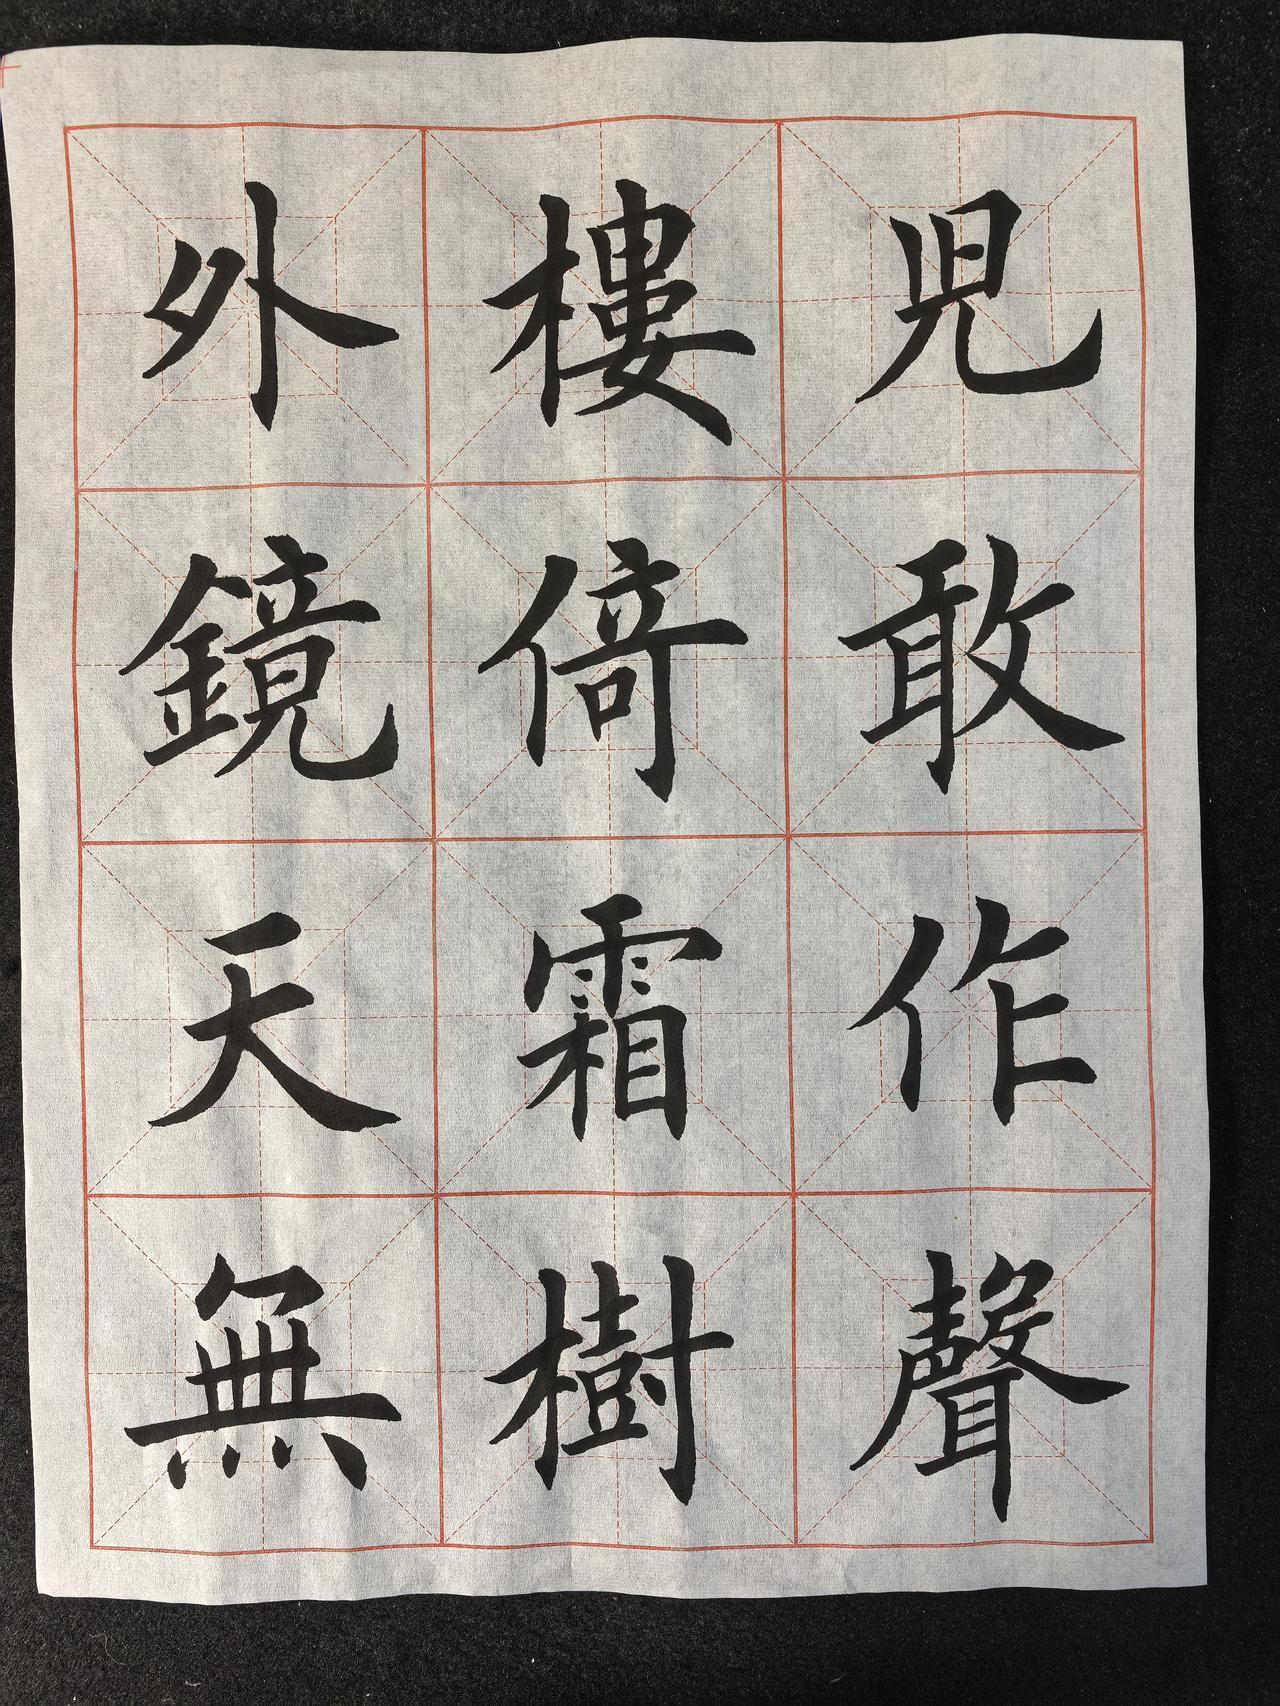 児敢作聲
樓倚霜樹
外鏡天無